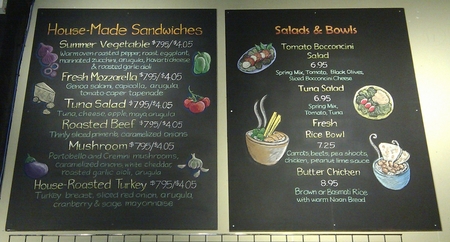 House-Made Sandwiches
Summer Vegetable $7.95/$4.05
Warm oven roasted pepper, roast, eggplant,
marinated zucchini, arugula, havarti cheese
& roasted garlic aioli
Fresh Mozzarella $7.95/$4.05
Genoa salami, capicollo, arugula
tomato caper tapenade
Tuna Salad $7.95/$4.05
Tuna, cheese, apple, mayo, arugula
Roasted Beef $7.95/$4.05
Thinly sliced primrib, caramelized onions
Mushroom $7.95/$4.05
Portobello and Cremini mushrooms,
caramelized onion, white cheddar,
roasted garlic aioli, arugula
House-Roasted Turkey $7.95/$4.05
Turkey breast, sliced red onion, arugula,
cranberry & sage mayonnaise
Salads & Bowls
Tomato Bocconcini
Salad
6.95
Spring Mix, Tomato, Black Olives,
Sliced Bocconcini Cheese
Tuna Salad
6.95
Spring Mix,
Tomato, Tuna
Fresh
Rice Bowl
7.25
Carrots, beets, pea shoots,
chicken, peanut lime sauce
Butter Chicken
8.95
Brown or Basmati Rice
with warm Naan Bread